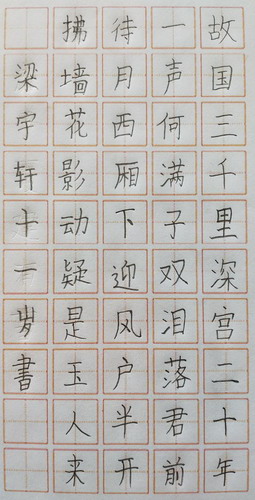 故国三千里深宫二十年
一声何满子双泪落君前
待月西厢下迎风户半开
拂墙花影动疑是玉人来
梁宇轩十一岁書